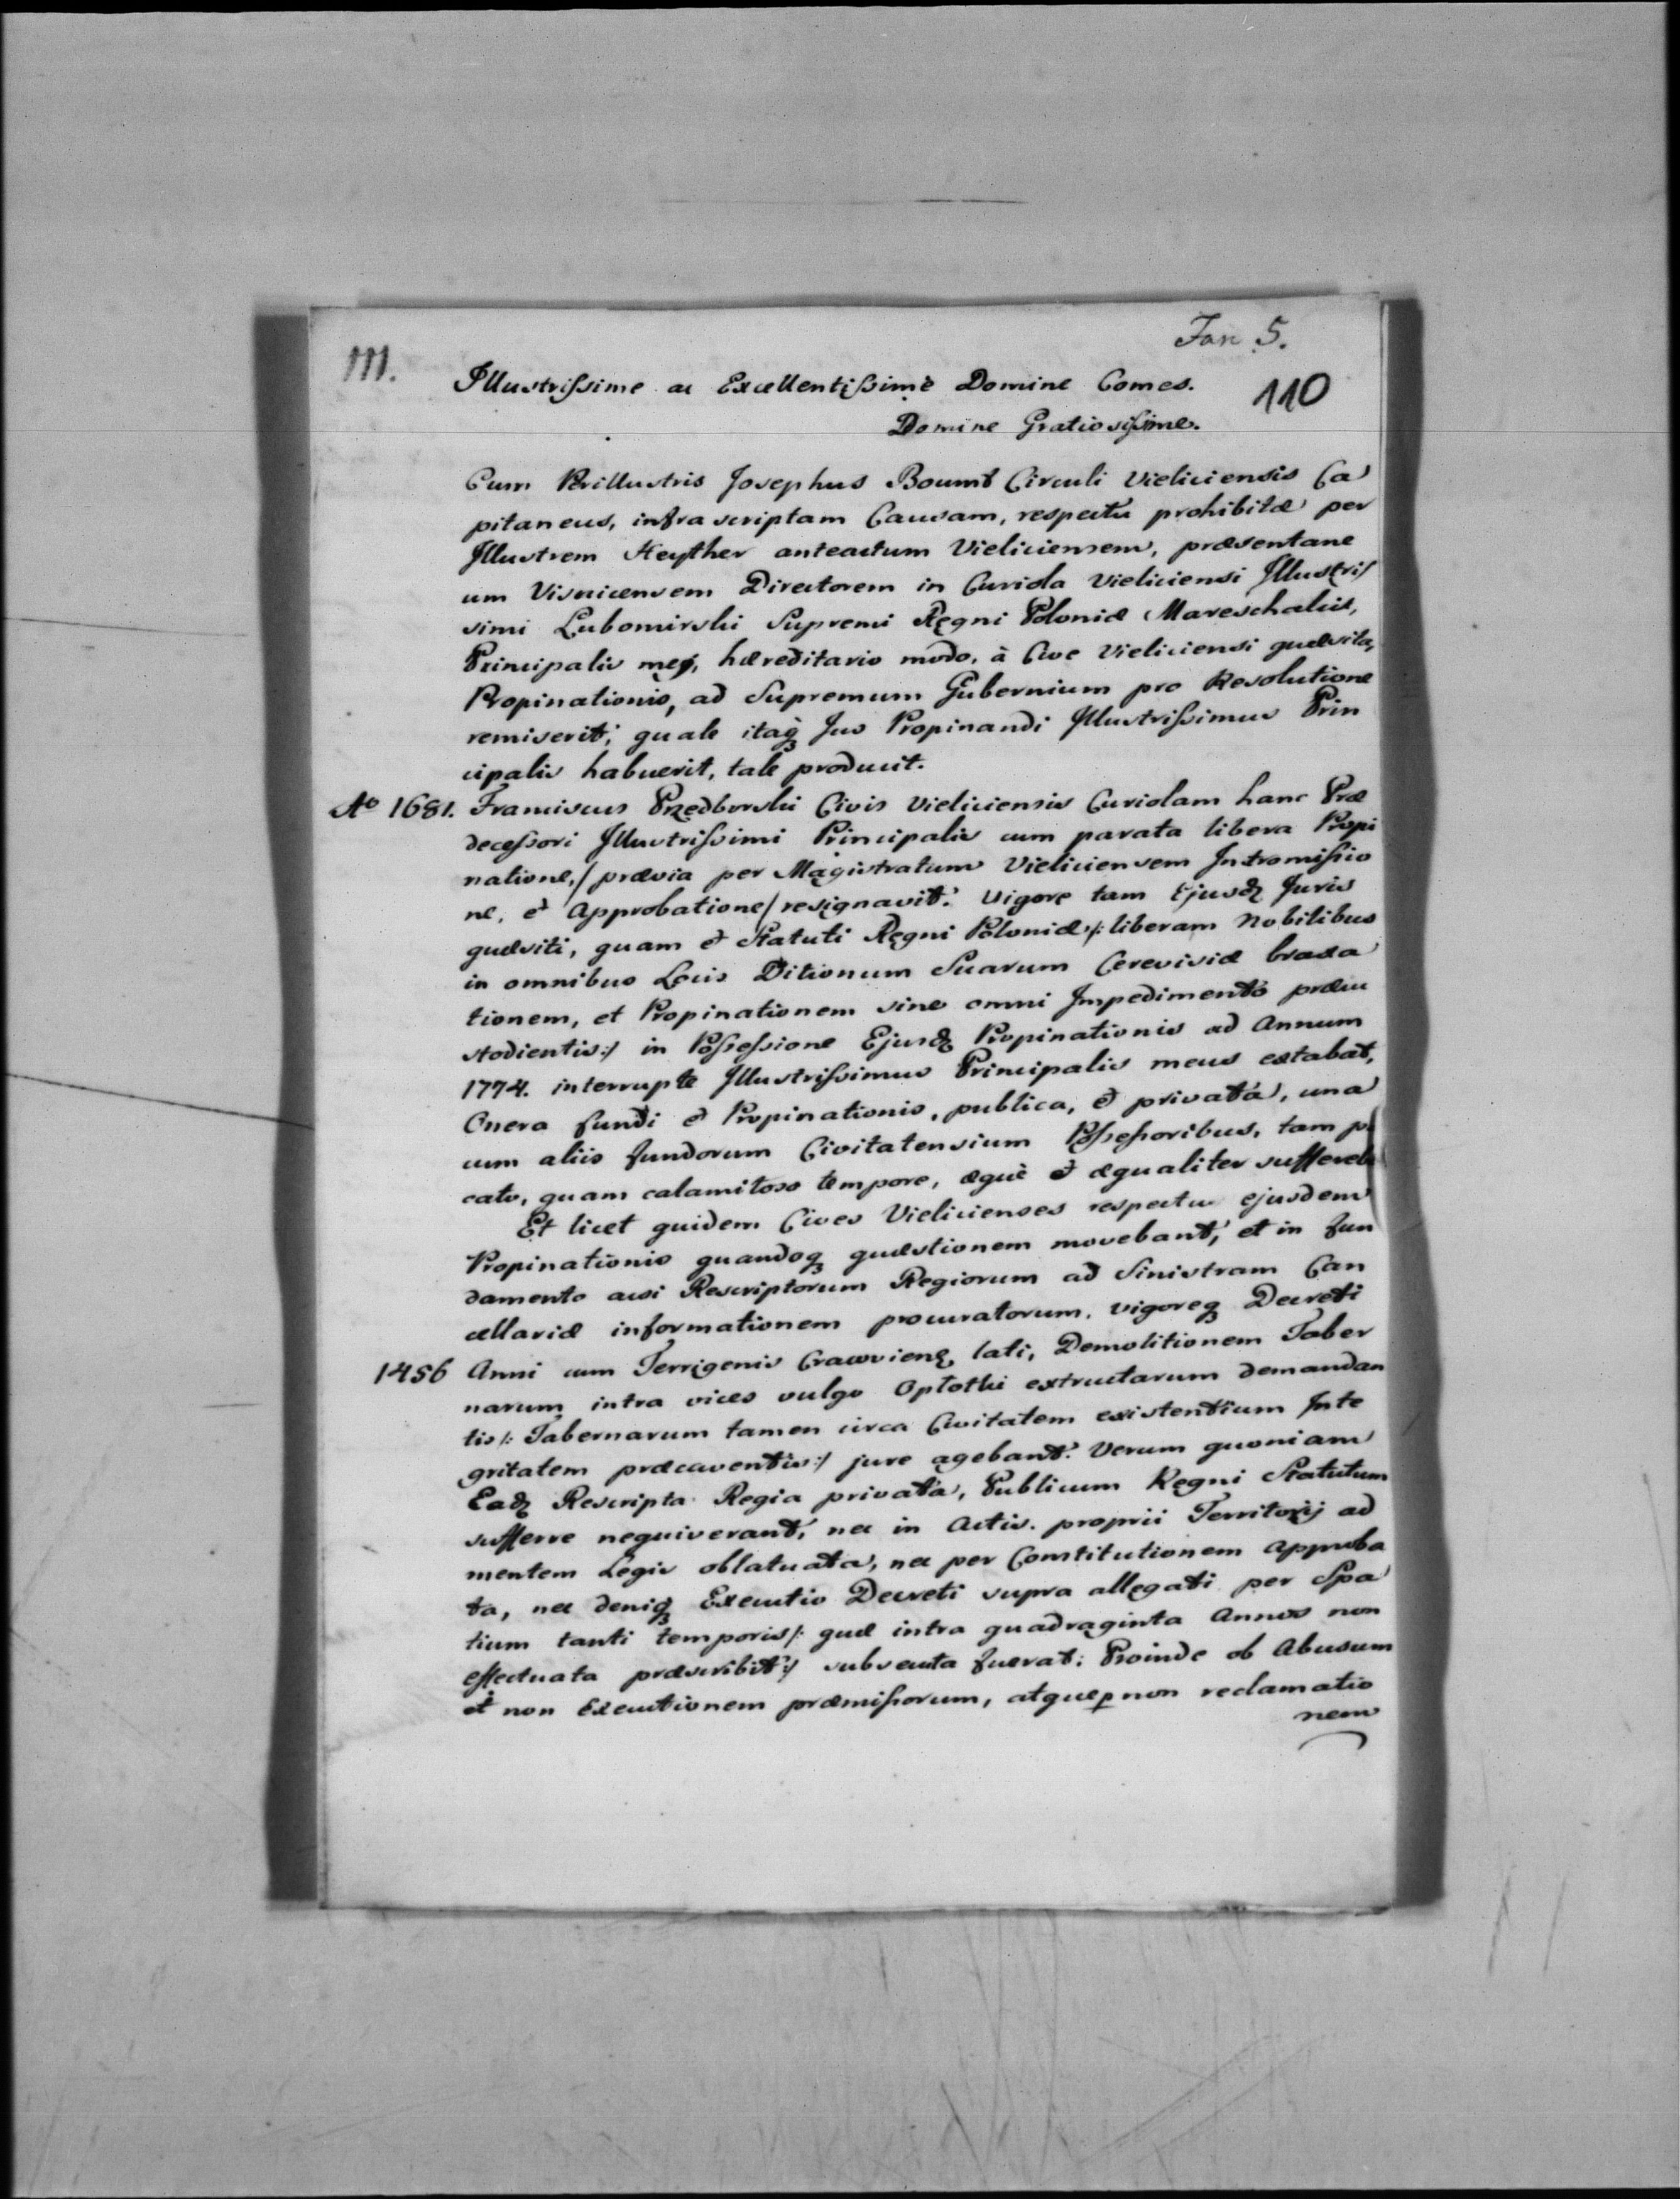 Jan 5.
111.
110
Illustrissime ac Excellentissimè Domine Comes.
Domine Gratiosissime.
Cum Perillustris Josephus Baumb Circuli Vieliciensis Ca
pitaneus, infrascriptam Causam, respectu prohibitæ per
Illustrem Heyther anteactum Vieliciensem, præsentane
um Visnicensem Directorem in Curiola Vieliciensi Illustris
simi Lubomirski Supremi Regni Poloniæ Mareschalis,
Principalis mej, hæreditario modo, à Cive Vieliciensi quæsita,
Propinationis, ad Supremum Gubernium pro Resolutione
remiserit; quale itaq Jus Propinandi Illustrissimus Prin
cipalis habuerit, tale producit.
Ao 1681. Franciscus Przedborski Civis Vieliciensis Curiolam hanc Præ
decessori Illustrissimi Principalis cum parata libera Propi
natione, / prævia per Magistratum Vieliciensem Intromissio
ne, et Approbatione / resignavit. Vigore tam Ejusdq Juris
quæsiti, quam et Statuti Regni Poloniæ /: liberam Nobilibus
in omnibus Locis Ditionum Suarum Cerevisiæ braxa
tionem, et Propinationem sine omni Impedimento præcu
stodientis :/ in Possessione Ejusdq Propinationis ad Annum
1774. interrupte Illustrissimus Principalis meus extabat,
Onera fundi et Propinationis, publica, et privata, una
cum aliis fundorum Civitatensium Possessoribus, tam pa
cato, quam calamitoso tempore, æquè et æqualiter suffereb
Et licet quidem Cives Vielicienses respectu ejusdem
Propinationis quandoq quæstionem movebant, et in fun
damento acsi Rescriptorum Regiorum ad Sinistram Can
cellariæ informationem procuratorum, vigoreq Decreti
1456 Anni cum Terrigenis Cracoviens lati, Demolitionem Taber
narum intra vices vulgo Opłotki extructarum demandan
tis /: Tabernarum tamen circa Civitatem existentium Inte
gritatem præcaventis :/ jure agebant. Verum quoniam
Eadq Rescripta Regia privata, Publicum Regni Statutum
sufferre nequiverant, nec in Actis proprii Territorij ad
mentem Legis oblatuata, nec per Constitutionem approba
ta, nec deniq Executio Decreti supra allegati per Spa
tium tanti temporis /: quæ intra quadraginta Annos non
effectuata præscribit :/ subsecuta fuerat: Proinde ob Abusum
et non Executionem præmissorum, atque non reclamatio
nem